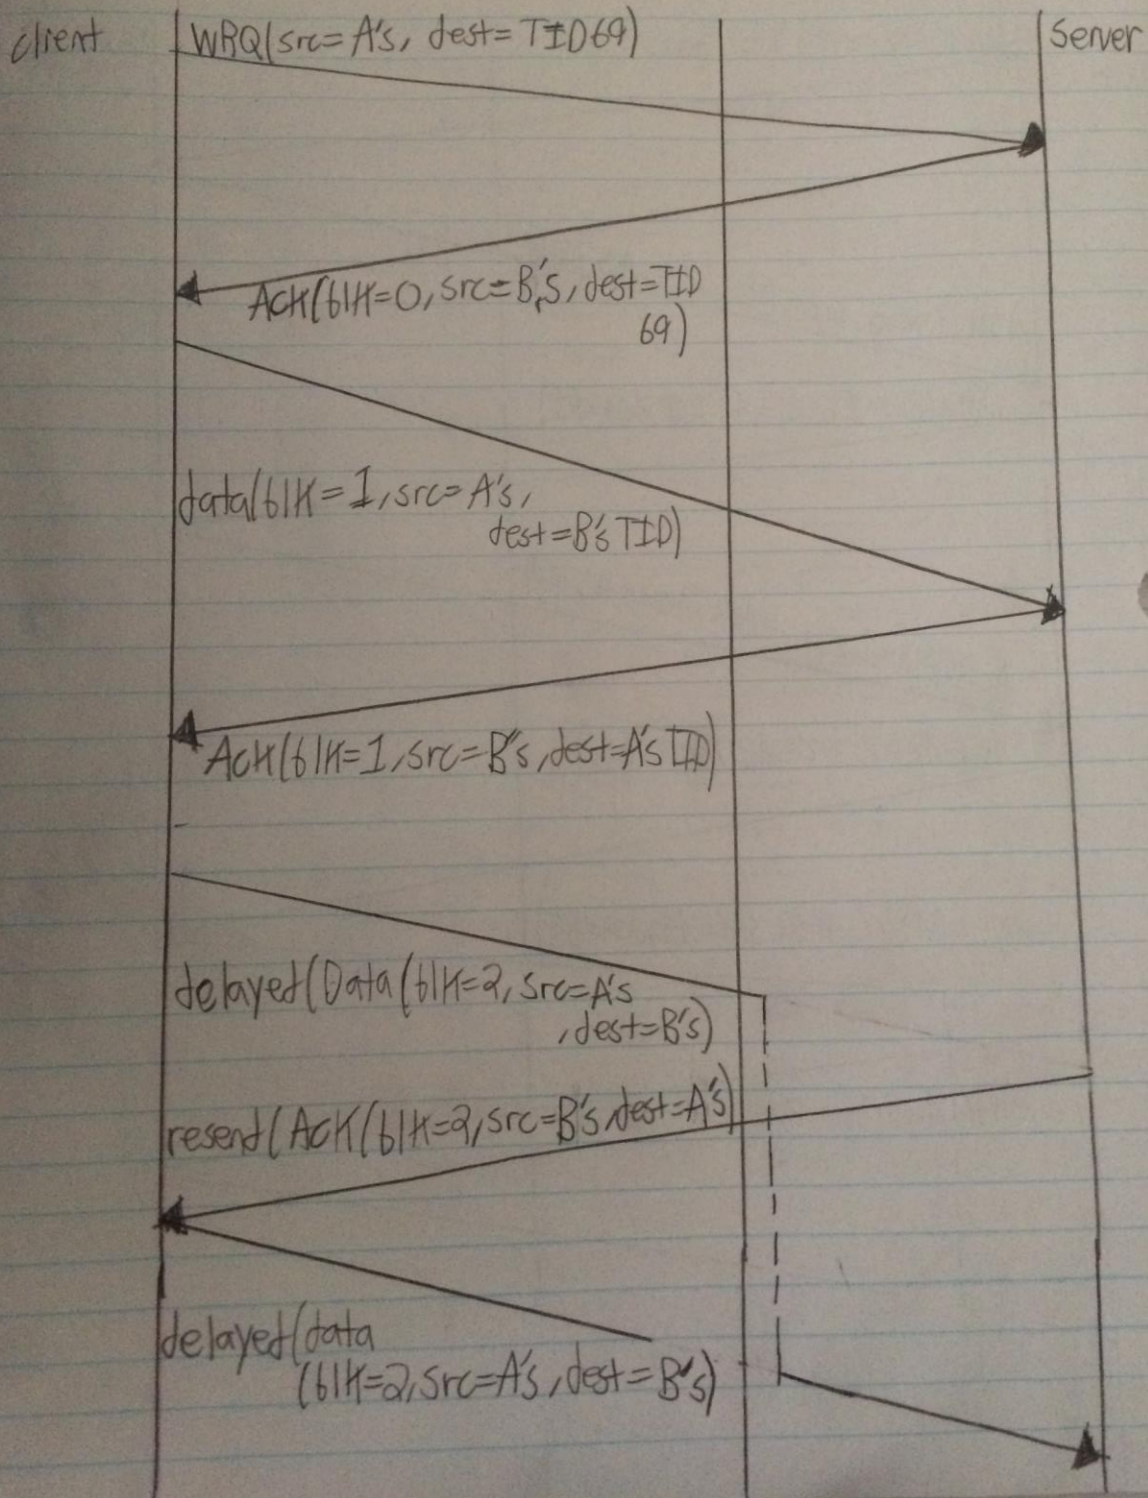 client
WRQ(src=A's, dest=TID69)
Server
ACK(blk=0, src=B's, dest=TID
69)
data(blk=1, src=A's,
dest=B's TID)
ACK(blk=1, src=B's, dest=A's TID)
delayed(Data(blk=2, src=A's
, dest=B's)
resend(ACK(blk=2, src=B's, dest=A's)
delayed(data
(blk=2, src=A's, dest=B's)